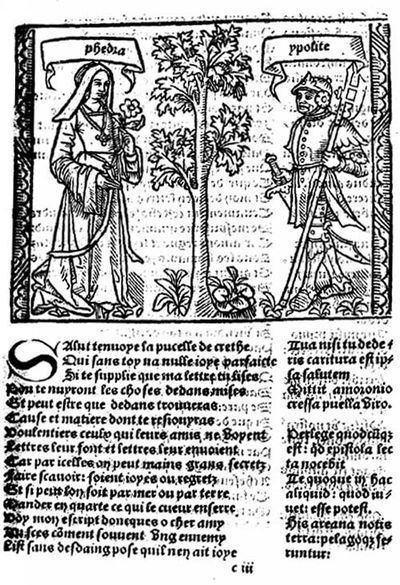 phedra
ypolite
Salut tenuoye la pucelle de crethe
Qui sans toy na nulle ioye parfaicte
Si te supplie que ma lettre tu lises
te nuyront les choses dedans mises
Et peut estre que dedans trouueras
Cause et matiere dont te resioyras
Voulentiers ceulx qui leurs amis ne voyent
Lettres leur font et lettres leur enuoient
Car par icelles on peut mains grans secretz
Faire scauoir: soient ioyes ou regretz
Et si peut lon soit par mer ou par terre
Mander en quarte ce qui le cueur enserre
Voy mon escript doncques o cher amy
Tu sces cõment souuent vng ennemy
List sans desdaing pose quil nen ait ioye
Qua nisi tu dede/
ris caritura est ip/
sa salutem
Mittit amazonio
cressa puella viro.
Perlege quodcũqz
est: qd epistola lec
ta nocebit
Te quoque in hac
aliquid: quod iu/
uet: esse potest.
His arcana notis
terra: pelagoqz fe/
runtur:
c iii